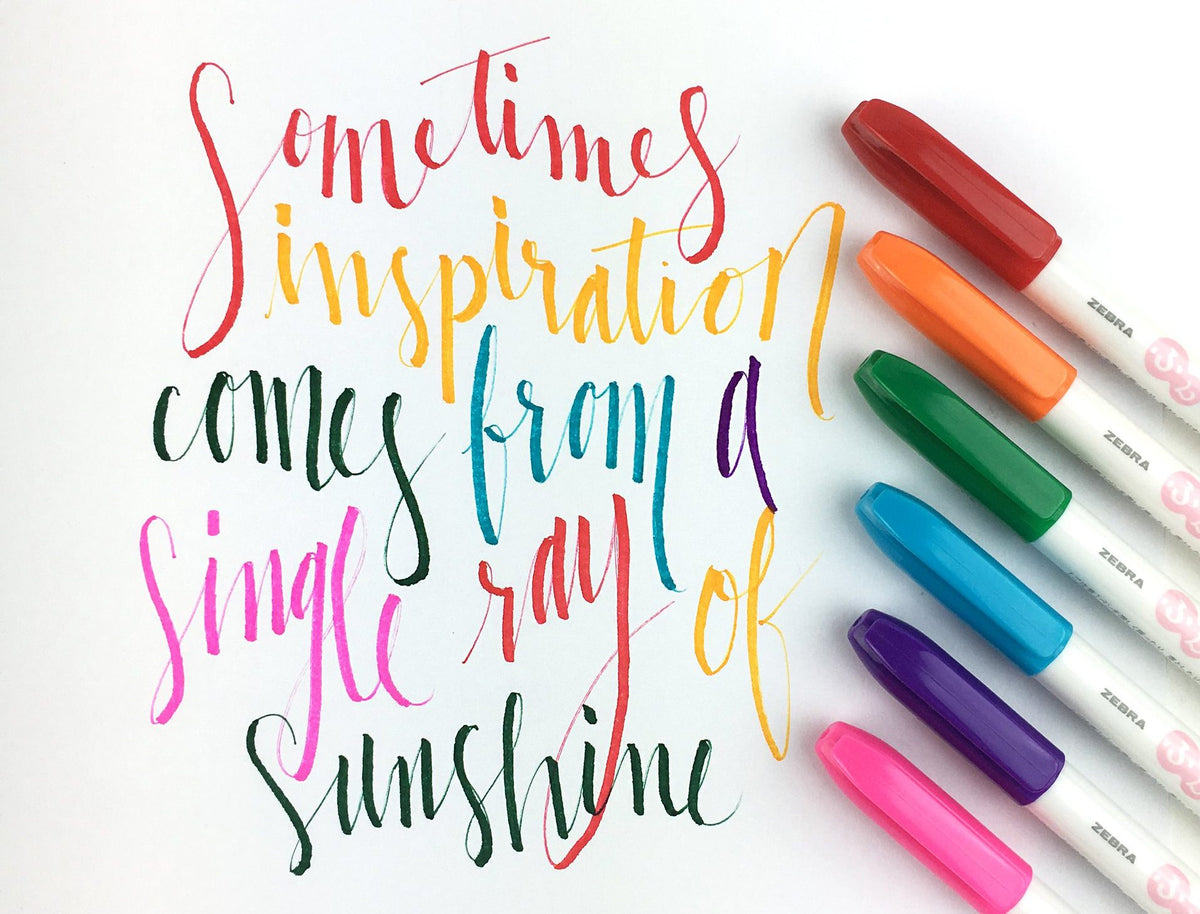 Sometimes
inspiration
comes from a
single ray of
sunshine
ZEBRA
ZEBRA
ZEBRA
ZEBRA
ZEBRA
ZEBRA